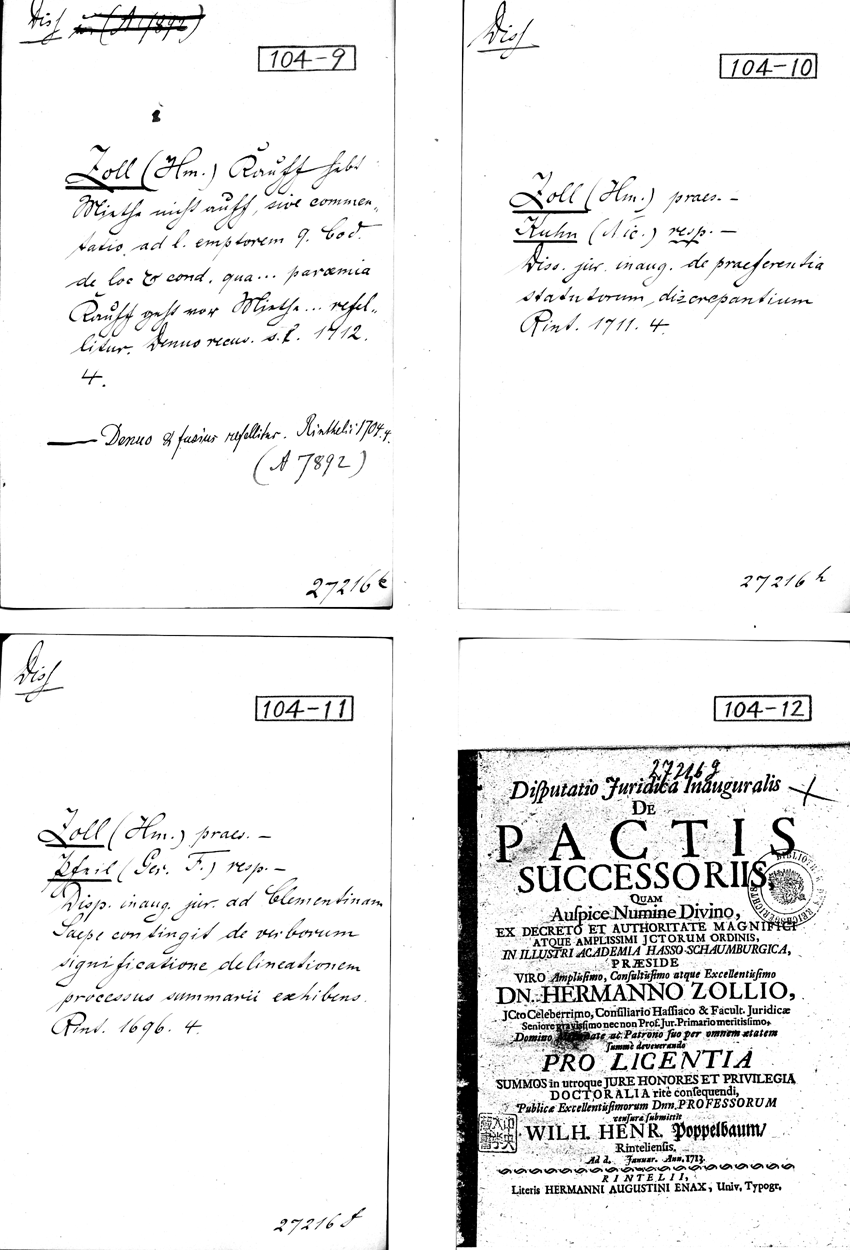 Diss
104-9
Zoll (Hm.) Kauff hebt
Miethe nicht auff, sive commen„
tatio ad l. emptorem 9. Cod.
de loc & cond. qua... parœmia
Kauff geht vor Miethe... refel„
litur. Denuo recus. s. l. 1712.
4.
— Denuo & fusius refellitur. Rinthelii 1704. 4.
(A 7892)
27216
Diss
104-10
Zoll (Hm.) praes. –
Kuhn (Nic.) resp. –
Diss. jur. inaug. de praeferentia
statutorum discrepantium
Rint. 1711. 4.
27216 h
Diss
104-11
Zoll (Hm.) praes. –
(Ger. F.) resp. –
Disp. inaug. jur. ad Clementinam
Saepe contingit de verborum
significatione delineationem
processus summarii exhibens.
Rint. 1696. 4.
27216 f
104-12
27216 g
Disputatio Juridica Inauguralis
DE
PACTIS
SUCCESSORIIS,
QUAM
Auspice Numine Divino,
EX DECRETO ET AUTHORITATE MAGNIFICI
ATQUE AMPLISSIMI JCTORUM ORDINIS,
IN ILLUSTRI ACADEMIA HASSO-SCHAUMBURGICA,
PRÆSIDE
VIRO Amplissimo, Consultissimo atque Excellentissimo
DN. HERMANNO ZOLLIO,
JCto Celeberrimo, Consiliario Hassiaco & Facult. Juridicæ
Seniore gravissimo nec non Prof. Jur. Primario meritissimo,
Domino Mecœnate ac Patrono suo per omnem ætatem
summè devenerando
PRO LICENTIA
SUMMOS in utroque JURE HONORES ET PRIVILEGIA
DOCTORALIA ritè consequendi,
Publicæ Excellentissimorum Dnn. PROFESSORUM
censuræ submittit
WILH. HENR. Poppelbaum/
Rinteliensis.
Ad d. Januar. Ann. 1713.
RINTELII,
Literis HERMANNI AUGUSTINI ENAX, Univ. Typogr.